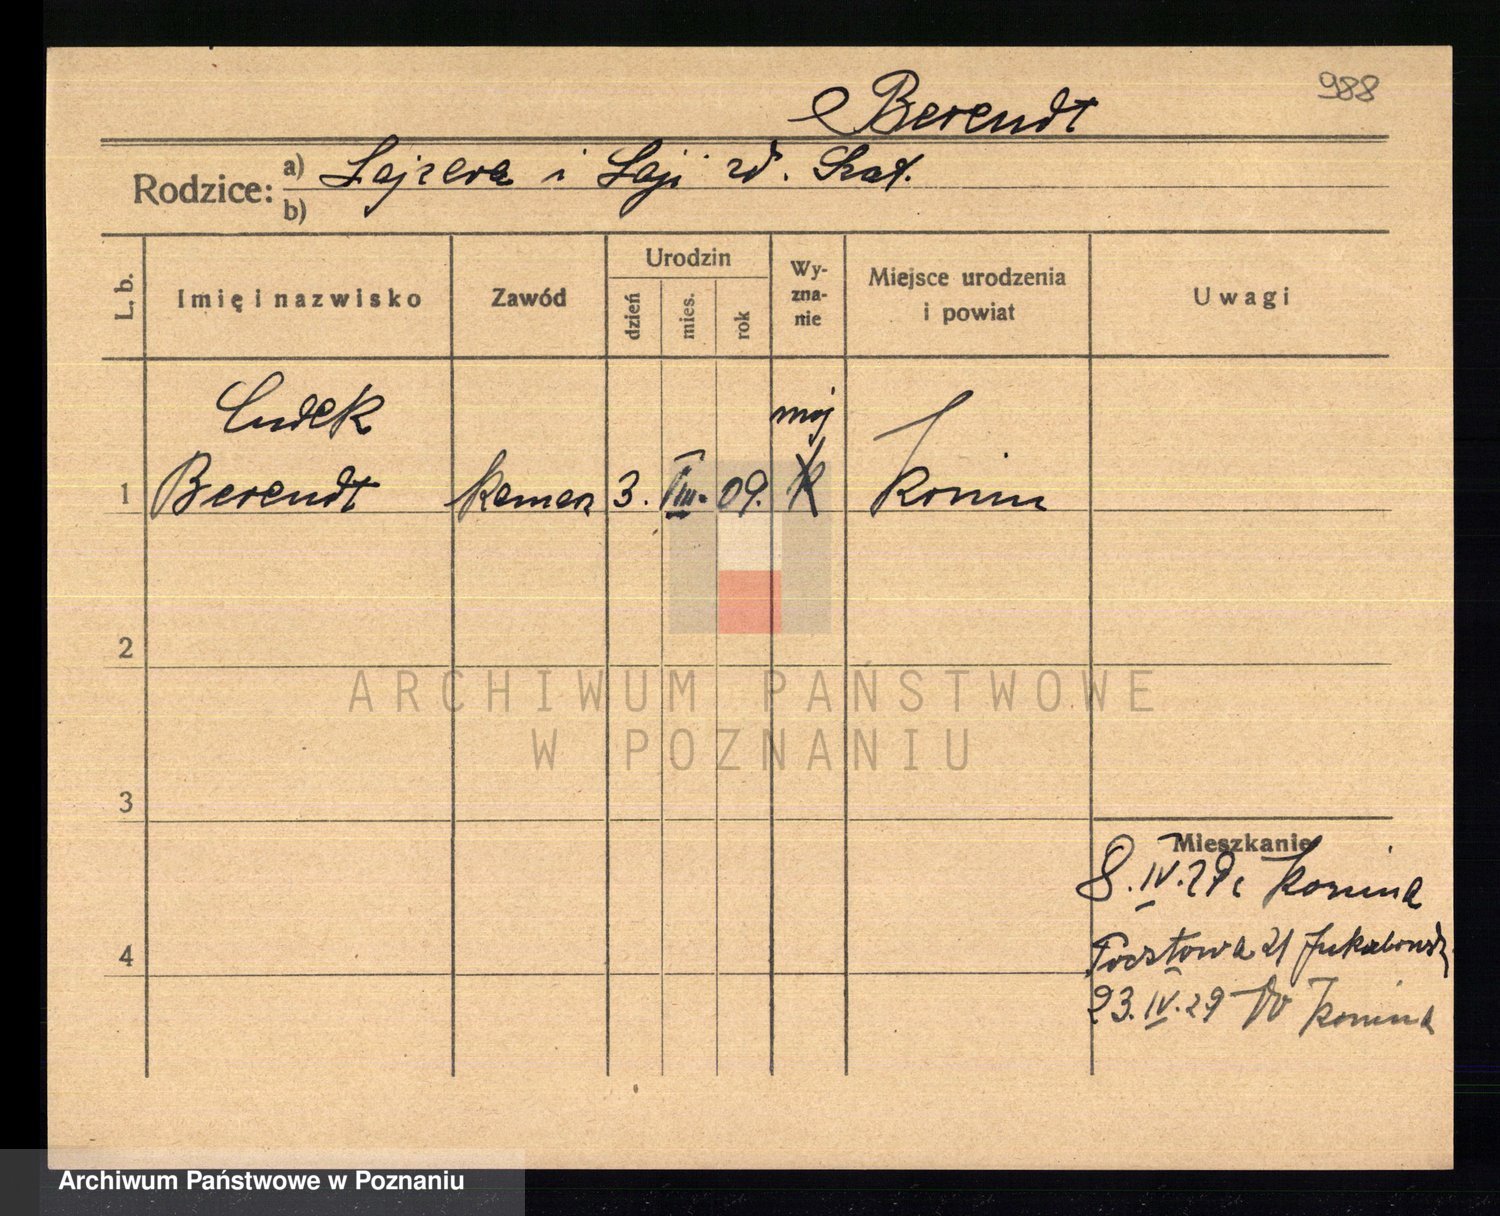 988
Berendt
Rodzice: a) Lajzera i Laji zd. Szat.
b)
L. b. Imię i nazwisko Zawód Urodzin dzień mies. rok Wyzna-nie Miejsce urodzenia i powiat Uwagi
Ludek mojż
1 Berendt 3. VIII. 09. Konin
2
3
4
Mieszkanie
8. IV. 29 z Konina
Pocztowa 21
23. IV. 29 do Konina
ARCHIWUM PAŃSTWOWE
W POZNANIU
Archiwum Państwowe w Poznaniu